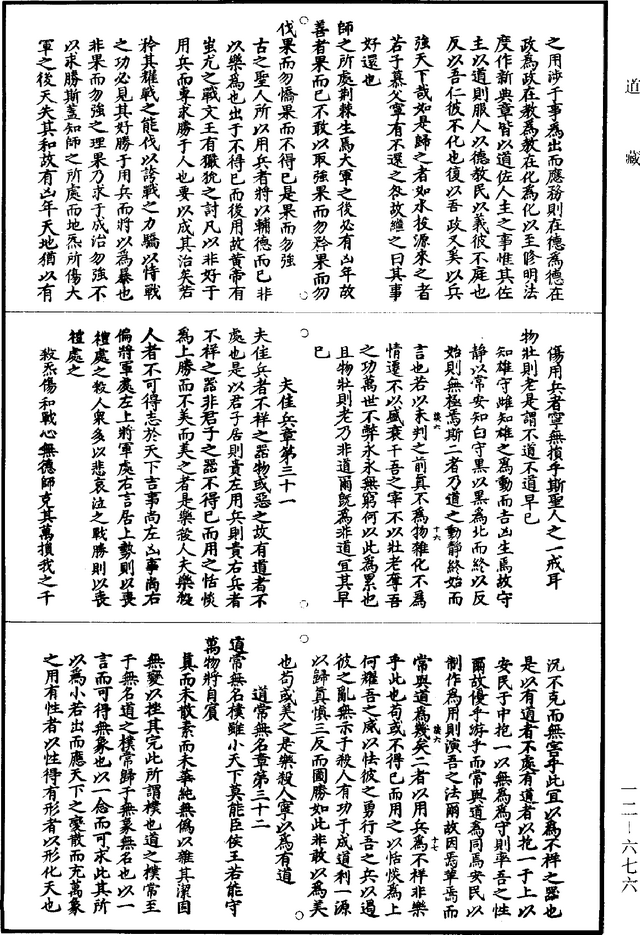 道藏
之用涉于事為出而應務則在德為德在
政為政在教為教在化為化以至修明法
度作新典章皆以道佐人主之事惟其佐
主以道則服人以德教民以義彼不庭也
反以吾仁彼不化也復以吾政又奚以兵
強天下哉如是歸之者如水投源來之者
若子慕父寧有不還之咎故繼之曰其事
好還也
師之所處荊棘生焉大軍之後必有凶年故
善者果而已不敢以取強果而勿矜果而勿
伐果而勿憍果而不得已是果而勿強
古之聖人所以用兵者將以輔德而已非
以樂為也出于不得已而後用故黃帝有
蚩尤之戰文王有玁狁之討凡以非好于
用兵而專求勝于人也要以成其治矣若
矜其耀戰之能伐以誇戰之力驕以恃戰
之功必見其好勝于用兵而將以為暴也
非果而勿強之理果乃求于成治勿強不
以求勝斯蓋知師之所處而地炁所傷大
軍之後天失其和故有凶年天地猶以有
傷用兵者寧無損乎斯聖人之一戒耳
物壯則老是謂不道不道早已
知雄守雌知雄之為動而吉凶生焉故守
靜以常安知白守黑以黑為北而終以反
始則無極焉斯二者乃道之動靜終始而
言也若以未判之前真不為物雜化不為
情遷不以盛衰干吾之宰不以壯老奪吾
之功萬世不弊永永無窮何以此為累也
且物壯則老乃非道爾既為非道宜其早
已
夫佳兵章第三十一
夫佳兵者不祥之器物或惡之故有道者不
處也是以君子居則貴左用兵則貴右兵者
不祥之器非君子之器不得已而用之恬惔
為上勝而不美而美之者是樂殺人夫樂殺
人者不可得志於天下吉事尚左凶事尚右
偏將軍處左上將軍處右言居上勢則以喪
禮處之殺人衆多以悲哀泣之戰勝則以喪
禮處之
殺炁傷和戰心無德師克其萬損我之千
況不克而無害乎此宜以為不祥之器也
是以有道者不處有道者以抱一于上以
安民于中抱一以無為為守則率吾之性
爾故優乎游乎而常與道為同焉安民以
制作為用則演吾之法爾故因焉革焉而
常與道為幾矣二者以用兵為不祥非樂
乎此也苟或不得已而用之以恬惔為上
何耀吾之威以怯彼之勇行吾之兵以遏
彼之亂無示于殺人有功于成道利一源
以歸真慎三反而圖勝如此非敢以為美
也苟或美之是樂殺人寧以為有道
道常無名章第三十二
道常無名樸雖小天下莫能臣侯王若能守
萬物將自賓
真而未散素而未華純無偽以雜其潔固
無變以挫其完此所謂樸也道之樸常至
于無名道之樸常歸于無象無名也以一
言而可得無象也以一念而可求此其所
以為小若出而應天下之變散而充萬象
之用有性者以性得有形者以形化天也
一二－六七六